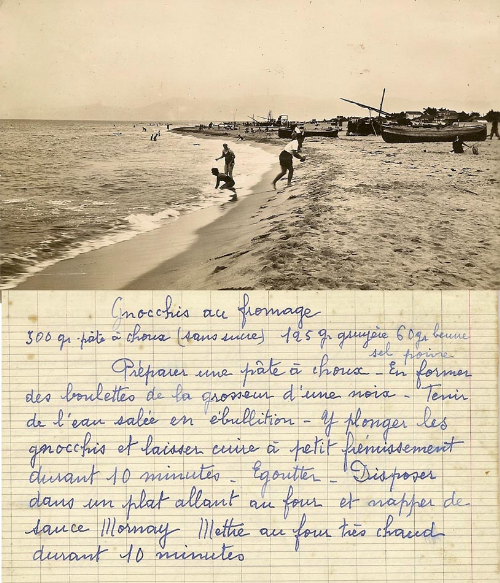 Gnocchis au fromage
300 gr. pâte à choux (sans sucre) 125 gr gruyère 60 gr beurre
sel poivre
Préparer une pâte à choux - En former
des boulettes de la grosseur d'une noix - Tenir
de l'eau salée en ébullition - Y plonger les
gnocchis et laisser cuire à petit frémissement
durant 10 minutes - Egoutter - Disposer
dans un plat allant au four et napper de
sauce Mornay Mettre au four très chaud
durant 10 minutes